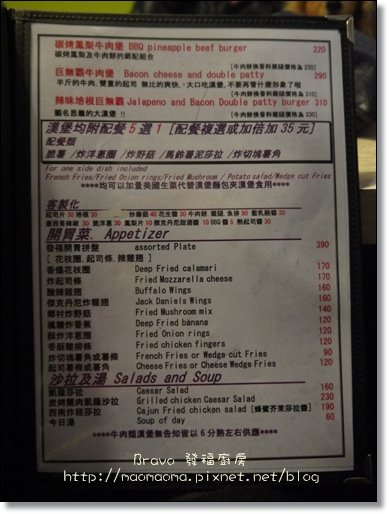 碳烤鳳梨牛肉堡 BBQ pineapple beef burger 220
碳烤鳳梨及牛肉餅的絕配組合 [牛肉餅換香料雞腿價格為 230]
巨無霸牛肉堡 Bacon cheese and double patty 290
半斤的牛肉, 雙重的起司 無比的爽快, 大口吃漢堡, 不要再管什麼形象了啦
[牛肉餅換香料雞腿價格為 310]
辣味培根巨無霸 Jalapeno and Bacon Double patty burger 310
顧名思義的大漢堡 !! [牛肉餅換香料雞腿價格為 330]
漢堡均附配餐 5 選 1 [配餐複選或加倍加 35 元]
配餐類
脆薯 /炸洋蔥圈 /炸野菇 /馬鈴薯泥莎拉 /炸切塊薯角
For one side dish included
French Fries/Fried Onion rings/Fried Mushroom / Potato salad/Wedge cut Fries
****均可以加量美國生菜代替漢堡麵包夾漢堡食用****
客製化
開胃菜. Appetizer
發福開胃拼盤 assorted Plate 390
[ 花枝圈. 起司條. 辣雞翅 ]
香爆花枝圈 Deep Fried calamari 170
炸起司條 Fried Mozzarella cheese 170
酸辣雞翅 Buffalo Wings 160
傑克丹尼炸雞翅 Jack Daniels Wings 160
鄉村炸野菇 Fried Mushroom mix 160
楓糖炸香蕉 Deep Fried banana 120
酥炸洋蔥圈 Fried Onion rings 120
香酥雞柳條 Fried chicken fingers 170
炸切塊薯角或薯條 French Fries or Wedge cut Fries 90
起司薯條或薯角 Cheese Fries or Cheese Wedge Fries 120
沙拉及湯 Salads and Soup
凱薩莎拉 Caesar Salad 160
炭烤雞肉凱薩莎拉 Grilled chicken Caesar Salad 230
西南炸雞莎拉 Cajun Fried chicken salad [蜂蜜芥茉莎拉醬] 190
今日湯 Soup of day 60
****牛肉類漢堡無告知皆以 6 分熟左右供應****
Bravo 發福廚房
http://maomaoma.pixnet.net/blog